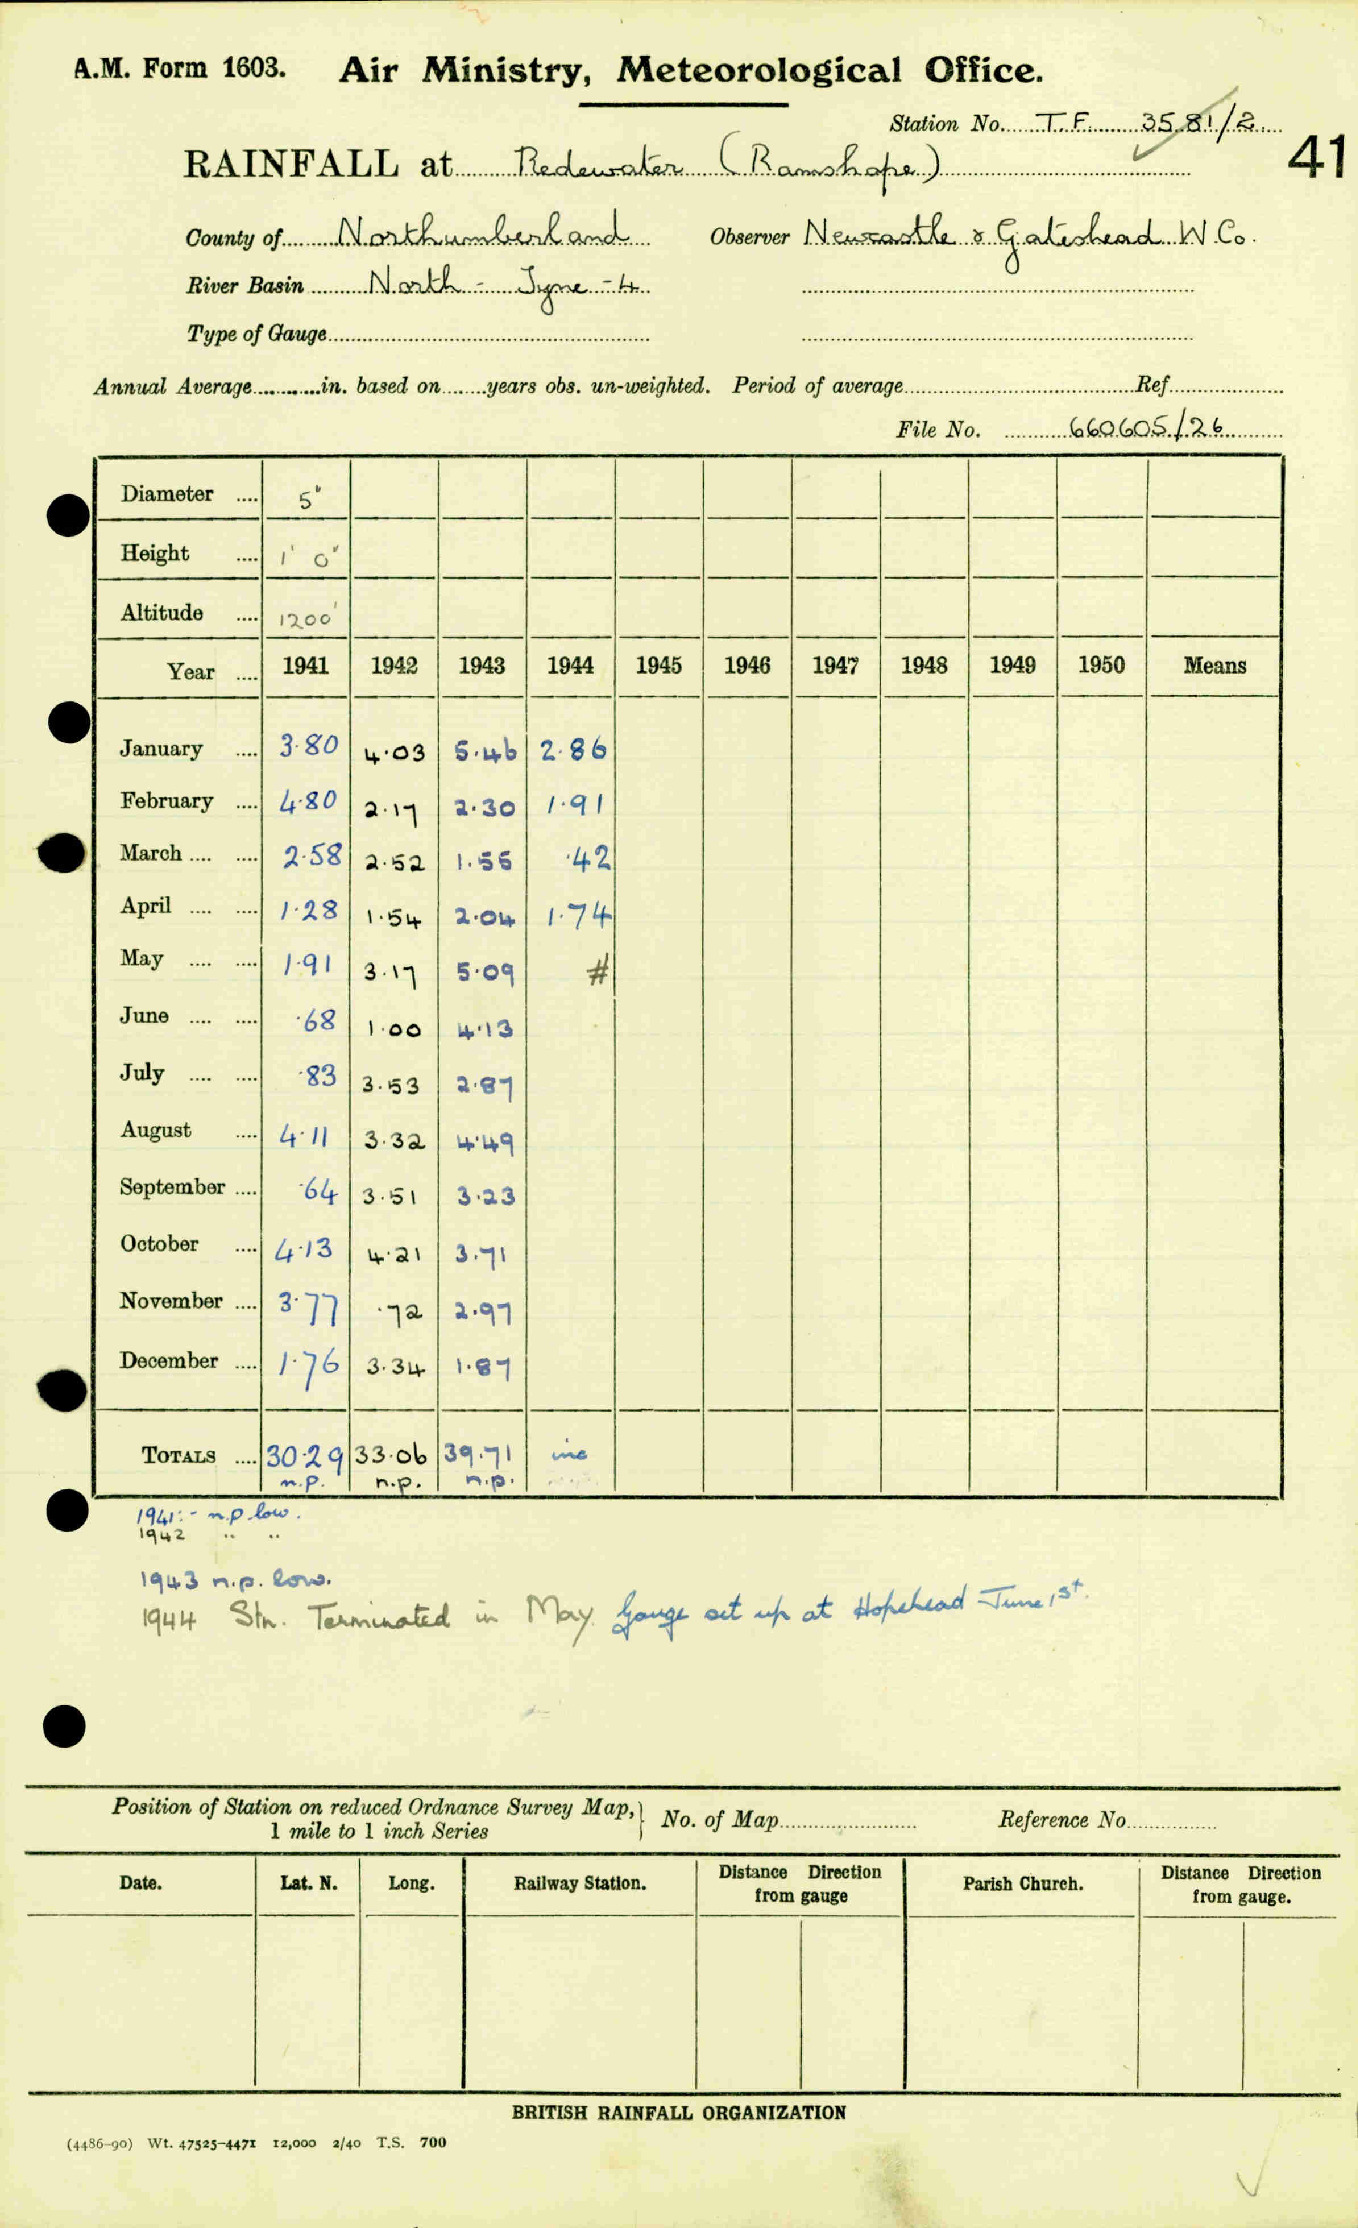 A.M. Form 1603. Air Ministry, Meteorological Office.
Station No. T.F. 3581/2
41
RAINFALL at Redewater (Ramshope)
County of Northumberland Observer Newcastle & Gateshead W. Co.
River Basin North - Tyne - 4
Type of Gauge
Annual Average in. based on years obs. un-weighted. Period of average Ref
File No. 660605/26
Diameter .... 5"
Height .... 1' 0"
Altitude .... 1200'
Year .... 1941 1942 1943 1944 1945 1946 1947 1948 1949 1950 Means
January .... 3.80 4.03 5.46 2.86
February .... 4.80 2.17 2.30 1.91
March .... .... 2.58 2.52 1.55 .42
April .... .... 1.28 1.54 2.04 1.74
May .... .... 1.91 3.17 5.09 #
June .... .... .68 1.00 4.13
July .... .... .83 3.53 2.87
August .... 4.11 3.32 4.49
September .... .64 3.51 3.23
October .... 4.13 4.21 3.71
November .... 3.77 .72 2.97
December .... 1.76 3.34 1.87
TOTALS .... 30.29 33.06 39.71 inc
n.p. n.p. n.p.
1941:- n.p. low.
1942 " "
1943 n.p. low.
1944 Stn. Terminated in May. Gauge set up at Hopehead June 1st.
Position of Station on reduced Ordnance Survey Map, } No. of Map Reference No.
1 mile to 1 inch Series
Date. Lat. N. Long. Railway Station. Distance Direction from gauge Parish Church. Distance Direction from gauge.
BRITISH RAINFALL ORGANIZATION
(4486-90) Wt. 47525-4471 12,000 2/40 T.S. 700